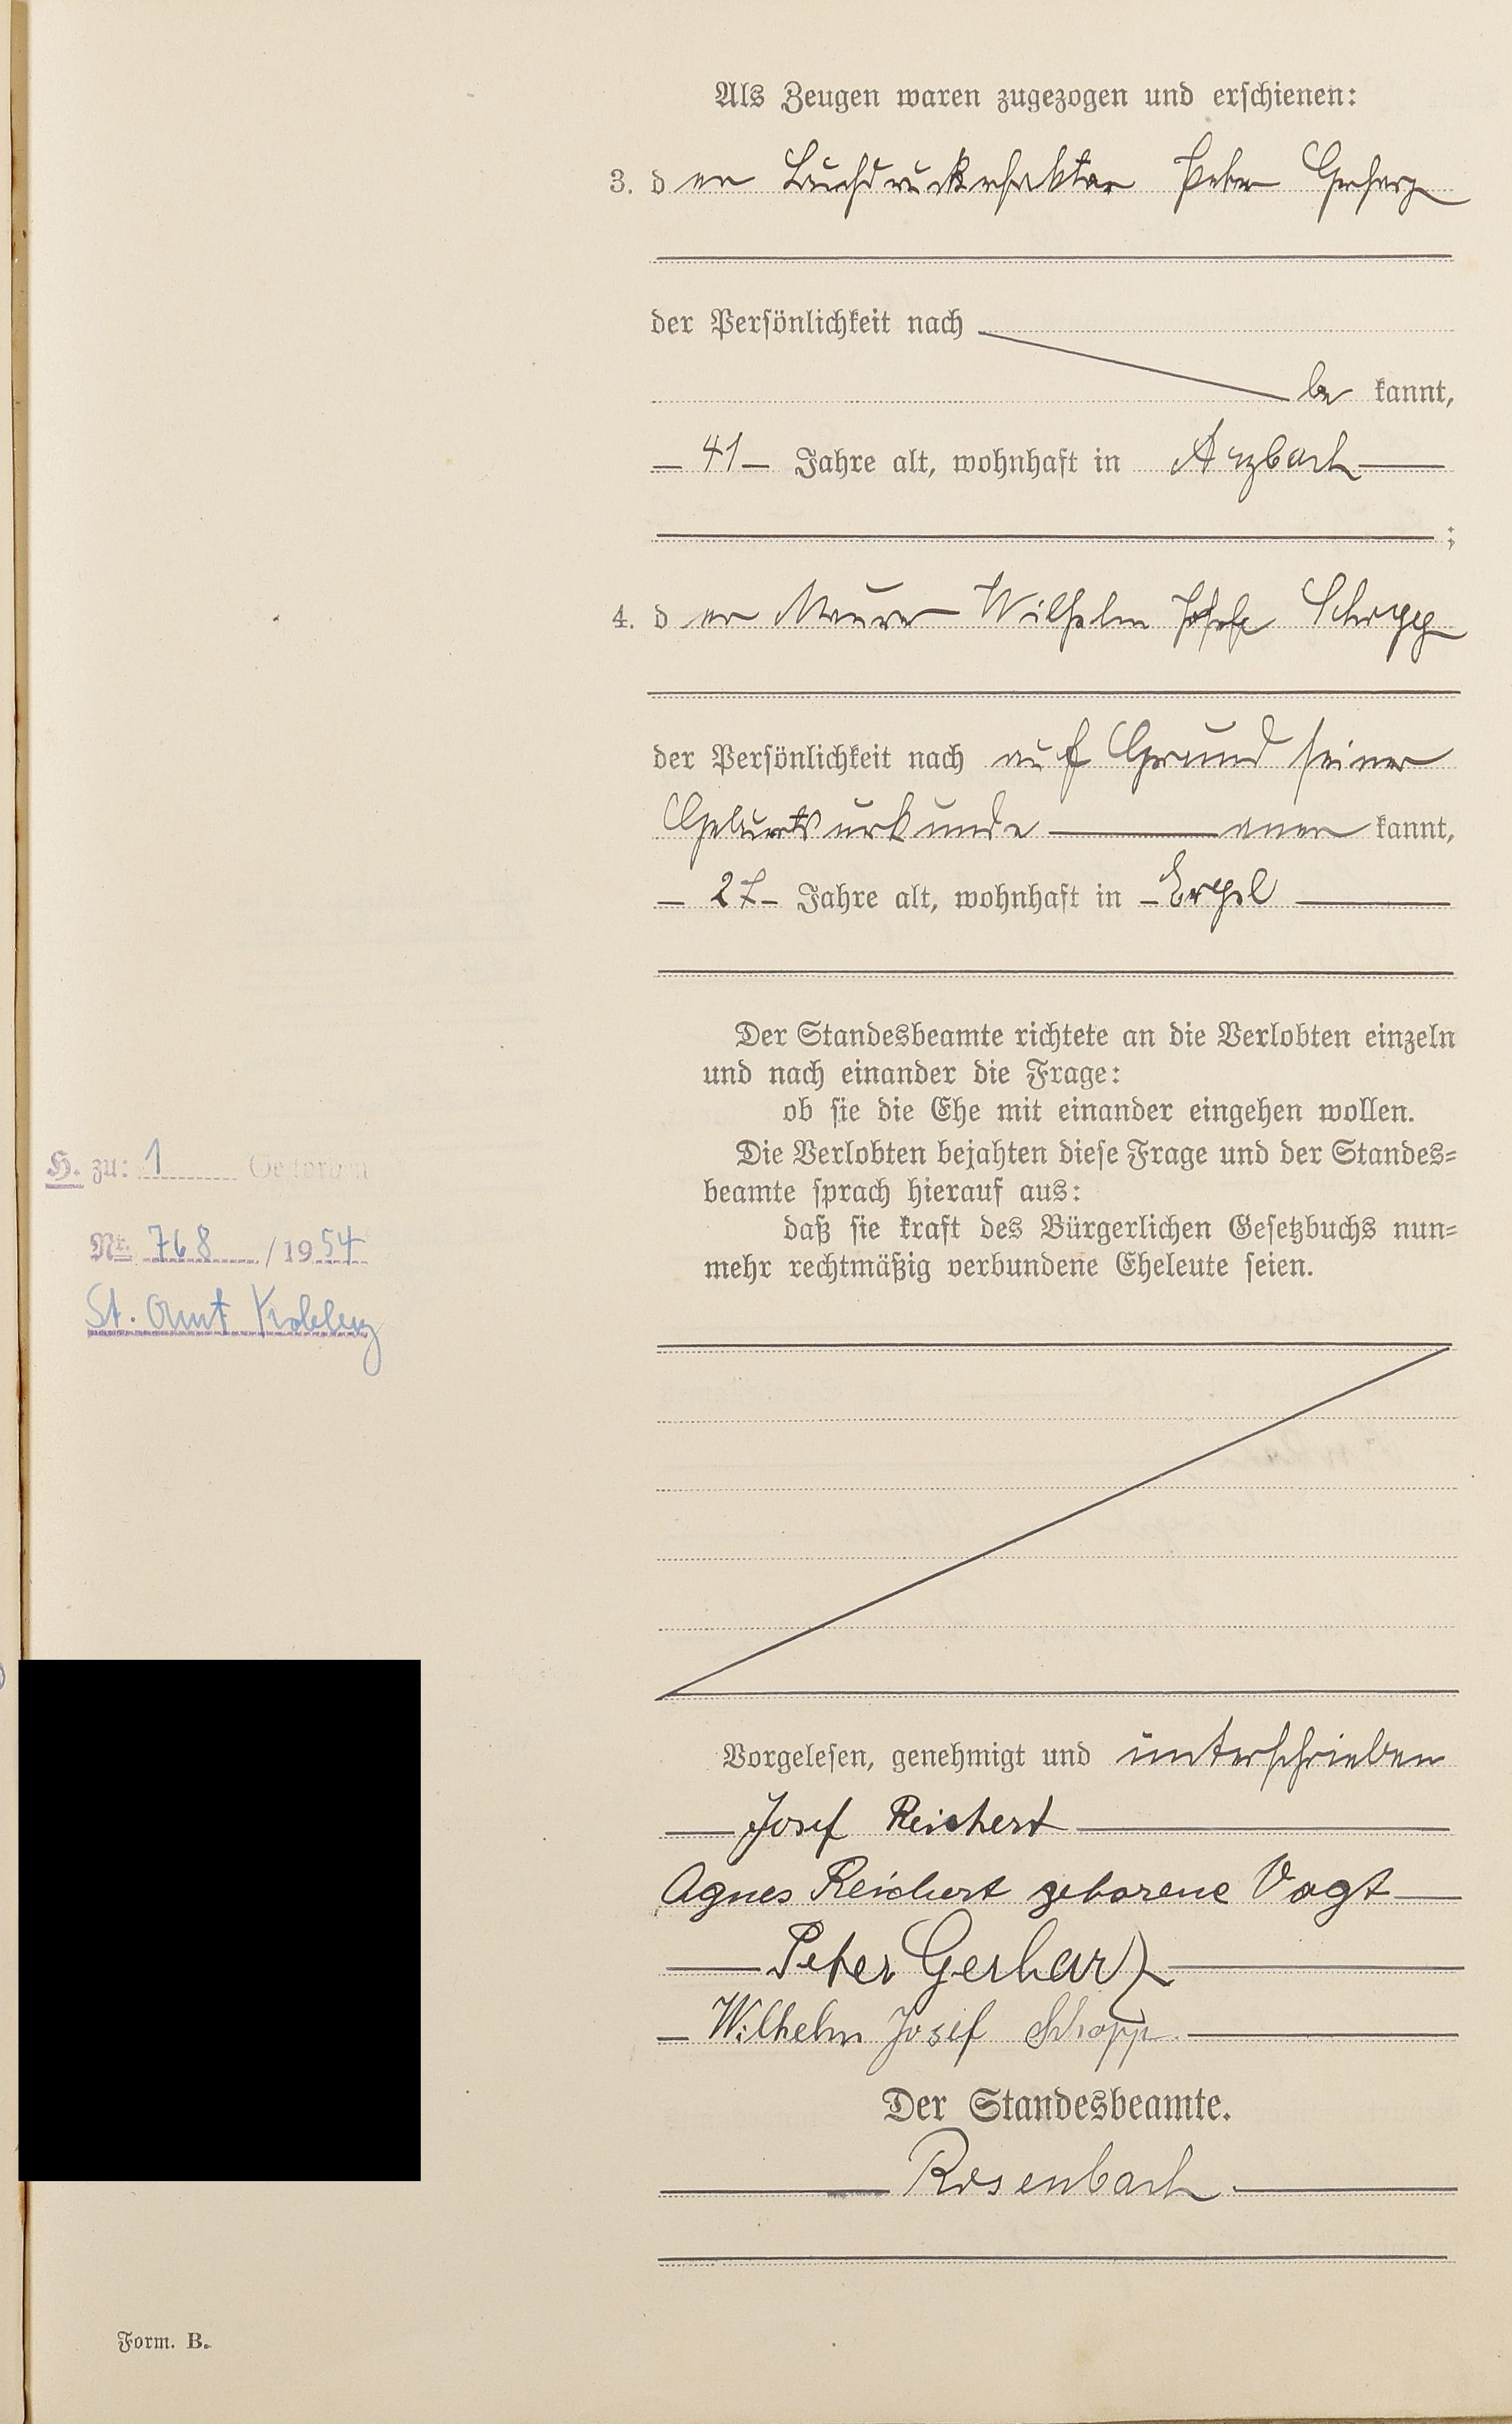 Als Zeugen waren zugezogen und erschienen:
3. der Buchdruckfaktor Peter Gerharz
der Persönlichkeit nach
be kannt,
41 Jahre alt, wohnhaft in Arzbach
;
4. der Maurer Wilhelm Josef Schopp
der Persönlichkeit nach auf Grund seiner
Geburtsurkunde aner kannt,
27 Jahre alt, wohnhaft in Erpel
Der Standesbeamte richtete an die Verlobten einzeln
und nach einander die Frage:
ob sie die Ehe mit einander eingehen wollen.
Die Verlobten bejahten diese Frage und der Standes=
beamte sprach hierauf aus:
daß sie kraft des Bürgerlichen Gesetzbuchs nun=
mehr rechtmäßig verbundene Eheleute seien.
H. zu: 1 Gestorben
Nr. 768 / 1954
St. Amt Koblenz
Vorgelesen, genehmigt und unterschrieben
Josef Reichert
Agnes Reichert geborene Vogt
Peter Gerharz
Wilhelm Josef Schopp.
Der Standesbeamte.
Rosenbach.
Form. B.